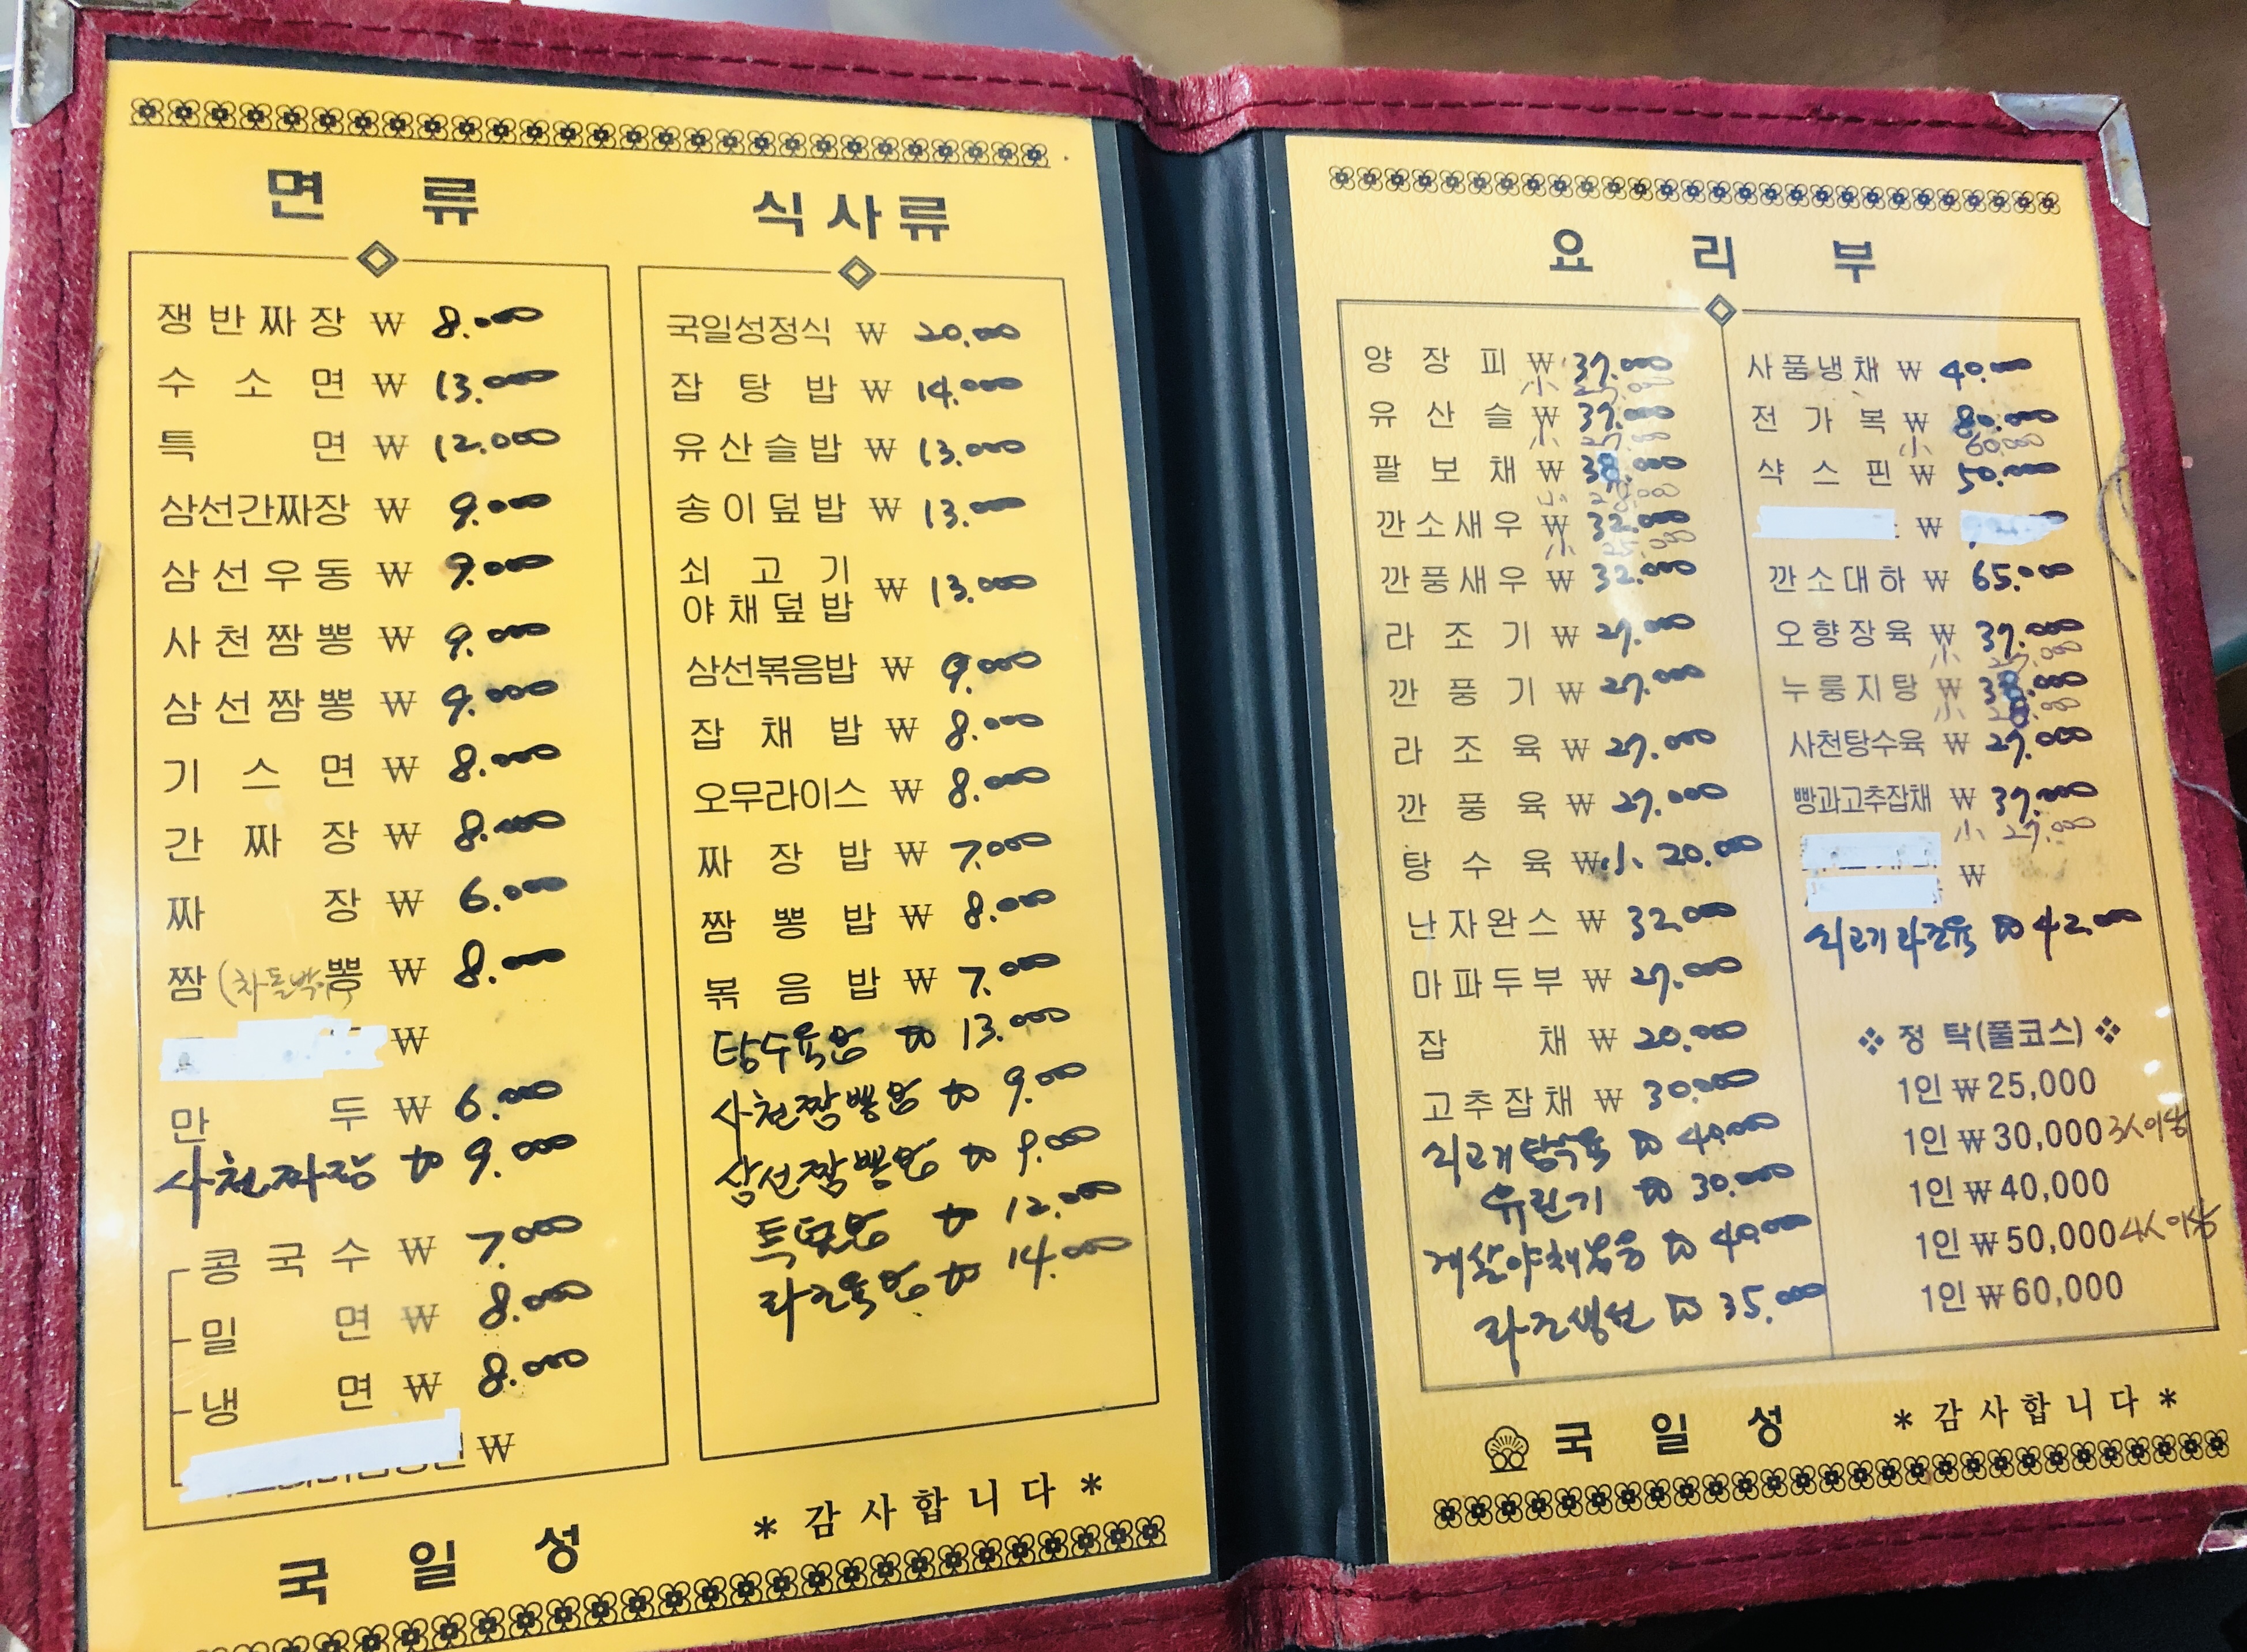 면 류
쟁반짜장 ₩ 8.000
수소면 ₩ 13.000
특면 ₩ 12.000
삼선간짜장 ₩ 9.000
삼선우동 ₩ 9.000
사천짬뽕 ₩ 9.000
삼선짬뽕 ₩ 9.000
기스면 ₩ 8.000
간짜장 ₩ 8.000
짜장 ₩ 6.000
짬(차돌박이)뽕 ₩ 8.000
₩
만두 ₩ 6.000
사천짜장 ₩ 9.000
콩국수 ₩ 7.000
밀면 ₩ 8.000
냉면 ₩ 8.000
₩
국 일 성
식사류
국일성정식 ₩ 20.000
잡탕밥 ₩ 14.000
유산슬밥 ₩ 13.000
송이덮밥 ₩ 13.000
쇠고기
야채덮밥 ₩ 13.000
삼선볶음밥 ₩ 9.000
잡채밥 ₩ 8.000
오무라이스 ₩ 8.000
짜장밥 ₩ 7.000
짬뽕밥 ₩ 8.000
볶음밥 ₩ 7.000
탕수육밥 ₩ 13.000
사천짬뽕밥 ₩ 9.000
삼선짬뽕밥 ₩ 9.000
특밥 ₩ 12.000
라조육밥 ₩ 14.000
* 감사합니다 *
요 리 부
양장피 ₩ 37.000
小
유산슬 ₩ 37.000
小 27.000
팔보채 ₩ 38.000
小 28.000
깐소새우 ₩ 32.000
小 25.000
깐풍새우 ₩ 32.000
라조기 ₩ 27.000
깐풍기 ₩ 27.000
라조육 ₩ 27.000
깐풍육 ₩ 27.000
탕수육 ₩ 小 20.000
난자완스 ₩ 32.000
마파두부 ₩ 27.000
잡채 ₩ 20.000
고추잡채 ₩ 30.000
쇠고기탕수육 ₩ 40.000
유린기 ₩ 30.000
게살야채볶음 ₩ 40.000
라조생선 ₩ 35.000
사품냉채 ₩ 40.000
전가복 ₩ 80.000
小 60.000
샥스핀 ₩ 50.000
₩
깐소대하 ₩ 65.000
오향장육 ₩ 37.000
小 27.000
누룽지탕 ₩ 38.000
小 28.000
사천탕수육 ₩ 27.000
빵과고추잡채 ₩ 37.000
小 27.000
₩
쇠고기라조육 ₩ 42.000
❖ 정 탁(풀코스) ❖
1인 ₩ 25,000
1인 ₩ 30,000 3人이상
1인 ₩ 40,000
1인 ₩ 50,000 4人이상
1인 ₩ 60,000
국 일 성 * 감사합니다 *